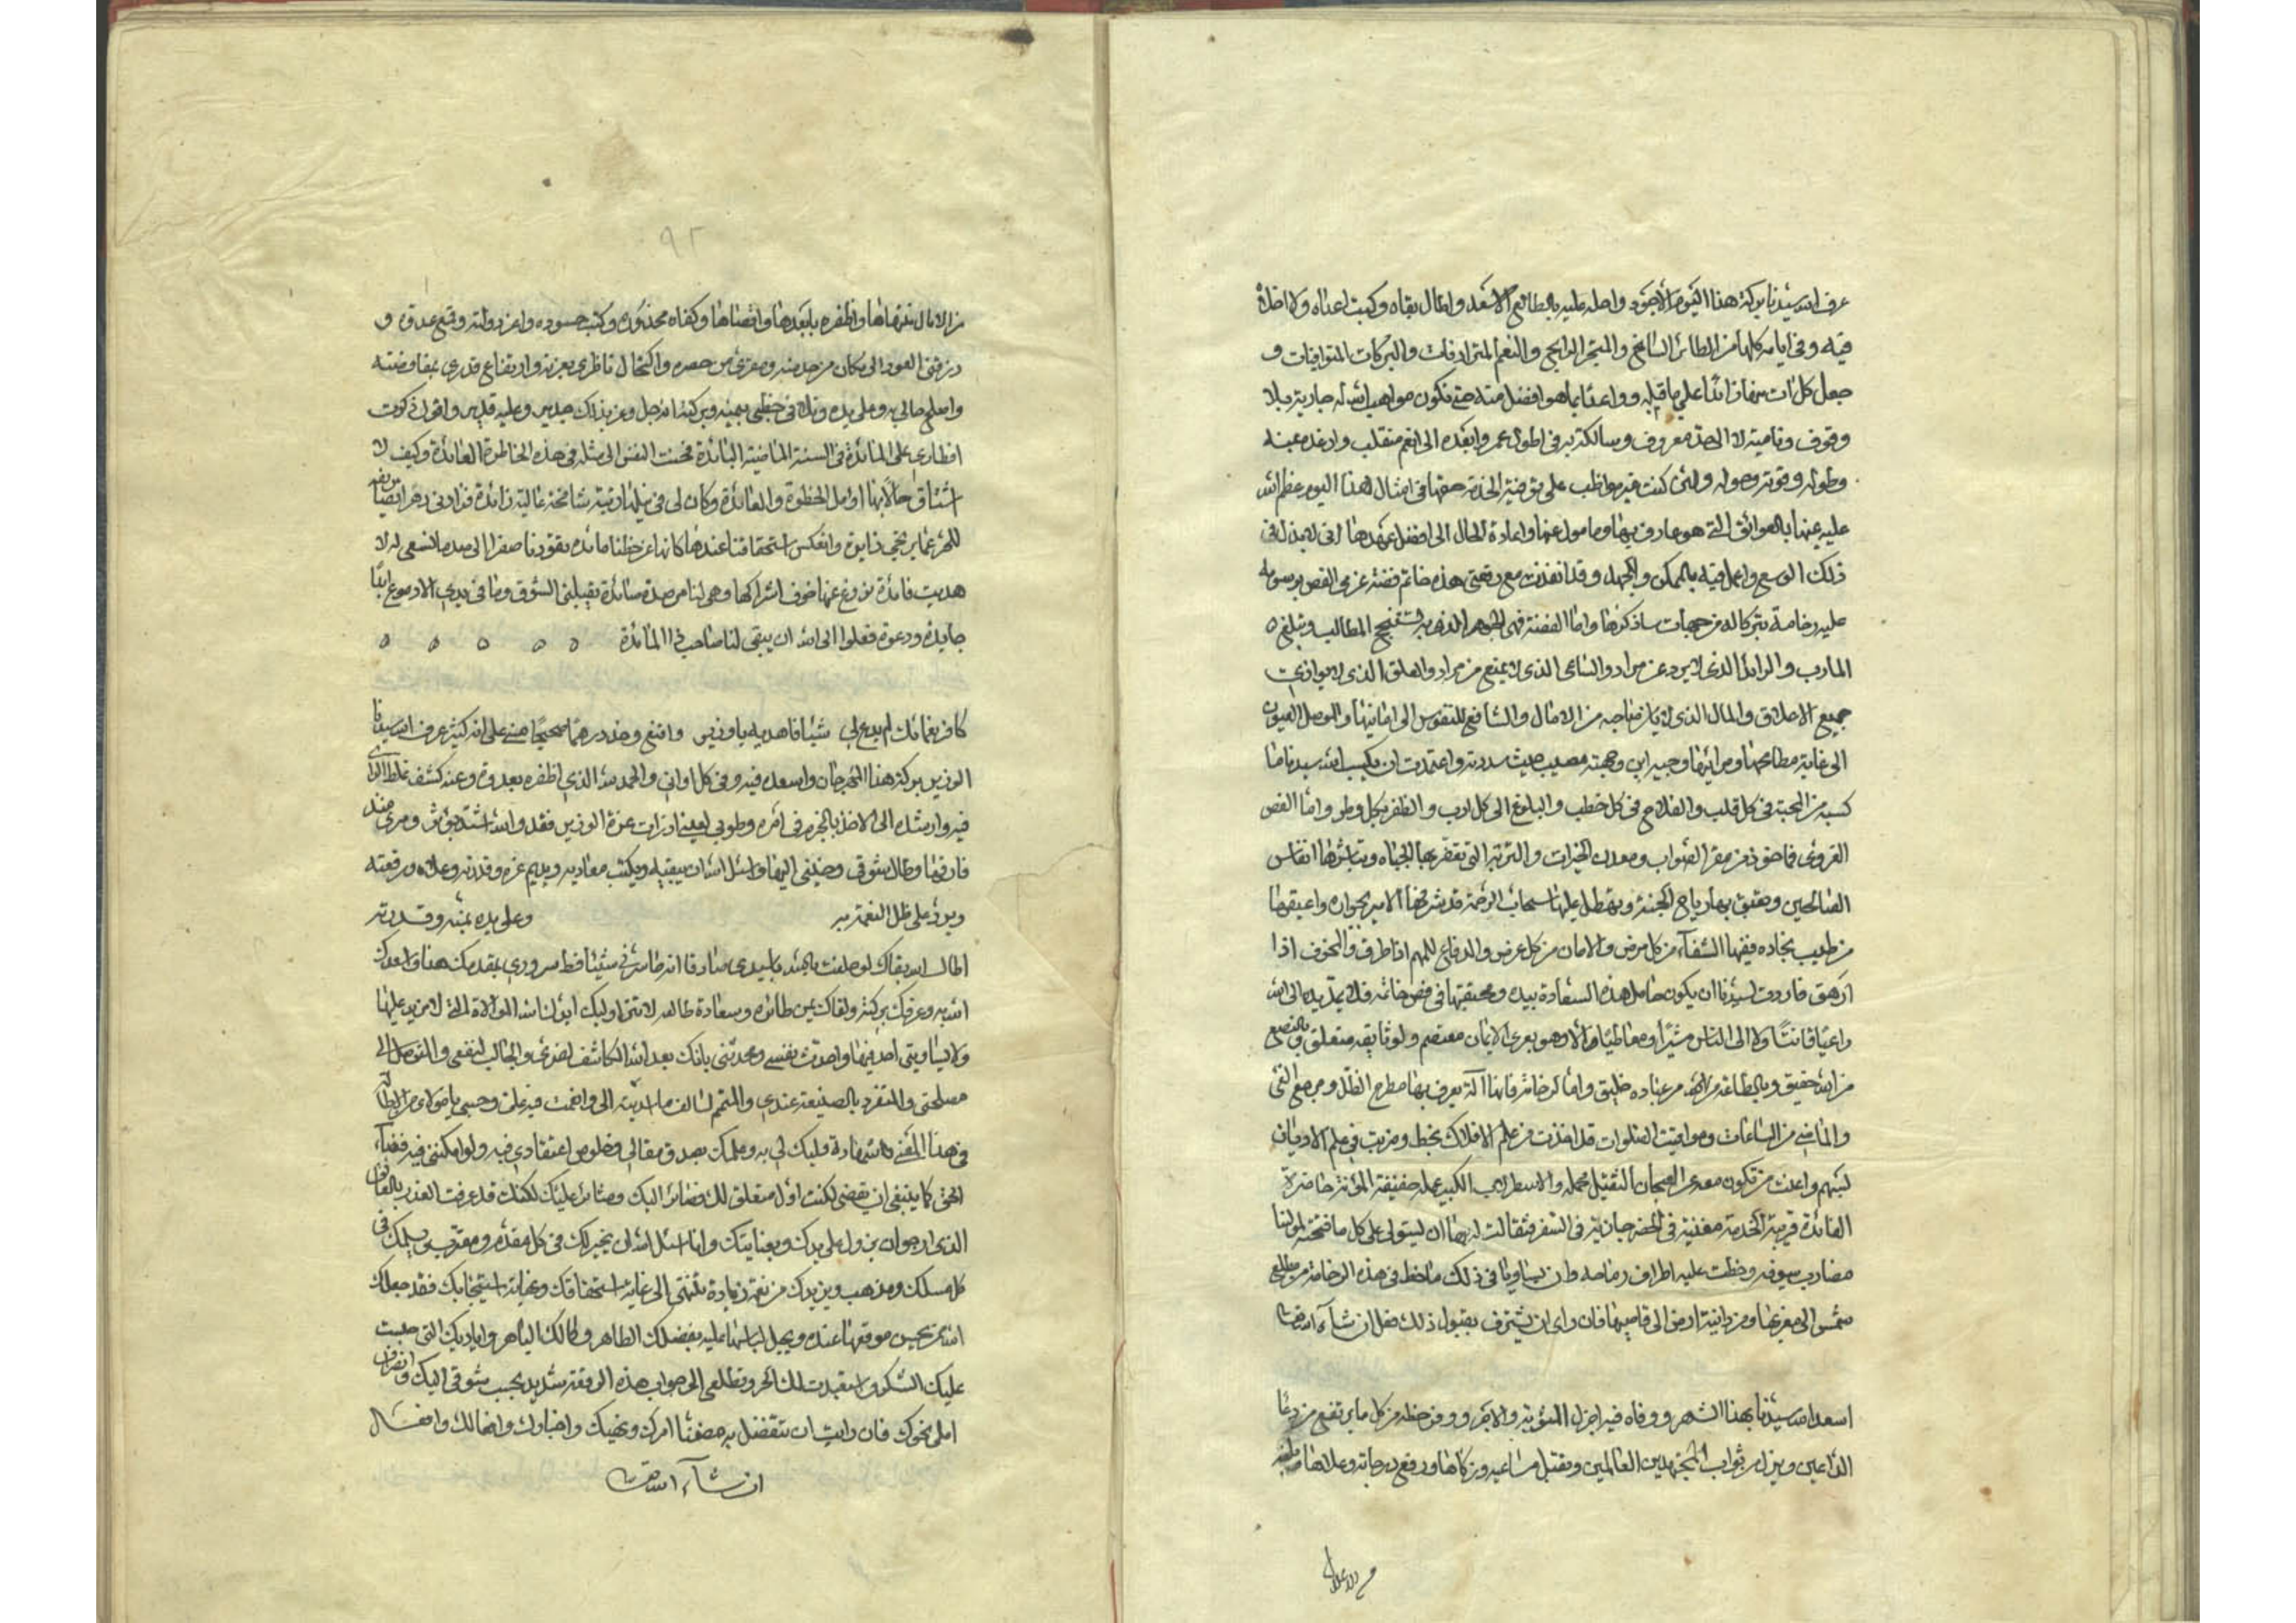 عرف الله سيدنا بركة هذا اليوم الأجود واحله عليه بالطالع الاسعد واطال بقاه وكبت اعداه ولا اخلاه
فيه وفى ايامه كلها من الطائر السانح والمتجر الرابح والنعم المترادفات والبركات المتوافيات و
جعل كل آت منها زائدًا على ما قبله وواعدًا بما هو افضل منه حتى تكون مواهب الله له جارية بلا
وقوف ونامية لا الى حد معروف وسالكة به فى اطول عمر وابعده الى انعم منقلب وارغده عيشه
وطوله وقوته وحوله ولئن كنت غير مواظب على توفية الخدمة حقها فى امثال هذا اليوم عظم الله
عليه عنها بالعوائق التى هو عارف بها ومامول عنها واعادة الحال الى افضل عهدها انى لابذل فى
ذلك الوسع واعمل فيه بالممكن والجهد وقد انفذت مع رقعتى هذه خاتم فضة غروى الفص برسومه
عليه رخامة تبركا له من جهات ساذكرها واما الفضة فهى الجوهر الذى به تستنجح المطالب وتبلغ
المارب والرائد الذى لا يرد عن مراد والساعى الذى لا يمنع من مراد والعلق الذى لا يوازى
جميع الاعلاق والمال الذى من الامال والشافع للنفوس الى امانيها والموصل العيون
الى غاية مطامحها ومراميها وجيه اين وجهته مصيب حيث سددته واعتمدت ان يكسب الله سيدنا ما
كسبه من المحبة فى كل قلب والفلاح فى كل خطب والبلوغ الى كل ارب والظفر بكل وطر واما الفص
الغروى فماخوذ من مقر الصواب ومعدن الخيرات والتربة التى تعفر بها الجباه وتباشرها انفاس
الصالحين وتعبق بها رياح الجنة وتهطل عليها سحاب الرحمة قد شرفها الامير بجواره واعبقها
من طيب نجاده ففيها الشفآء من كل مرض والامان من كل عرض والدفاع للملم اذا طرق والمخوف اذا
ارهق فاردت لسيدنا ان يكون حامل هذه السعادة بيده ومحتقبها فى فص خاتمه فلا يمد يده الى الله
داعيًا قانتًا ولا الى الناس مشيرًا ومعاطيًا الا وهو بعرى الايمان معتصم ولوثايقه متعلق وبالصنع
من الله حقيق وبالطاعة من عباده خليق واما الرخامة فانها آلة يعرف بها مطرح الظل ومرجع الفئ
والماضى من الساعات ومواقيت الصلوات قد اخذت من علم الافلاك بحظ وضربت فى علم الاديان
بسهم واغنت من تكون معه عن البنكان الثقيل محمله والاسطرلاب الكبير عمله خفيفة المؤنة حاضرة
الفائدة قريبة الخدمة مغنية فى الحضر جارية فى السفر فتفالت له بها ان يستولى على كل ما فتحته لمولنا
مضارب سيوفه وخطت عليه اطراف رماحه وان يساوينا فى ذلك ماخط فى هذه الرخامة من مطلع
شمس الى مغربها ومن دانية ارض الى قاصيها فان راى ان يشرف بقبول ذلك فعل ان شآء الله تعالى
اسعد الله سيدنا بهذا الشهر ووفاه فيه اجزل المثوبة والاجر ووفر حظه من كل ما يرتفع من دعا
الداعين وينزل من ثواب المجتهدين العالمين وتقبل مساعيه وزكاها ورفع درجاته وعلاها وبلغه
من الامال
٩٢
من الامال منتهاها واظفره بابعدها واقصاها وكفاه محذوره وكبت حسوده واعز دولته وقمع عدوه و
رزقنى العود الى مكان من خدمته ومقرى من حضرته واكتحال ناظرى بعزته وارتفاع قدرى بمفاوضته
واصلح حالى به وعلى يده وتلافى حظى بيمنه وبركته انه جل وعز بذلك جدير وعليه قدير واقول ذكرت
افطارى على المائدة فى السنة الماضية البائدة فحنت النفس الى مثله فى هذه الخاطرة العائدة وكيف لا
اشتاق حالا بها اوامل الحظوة والفائدة وكان لى فى نيلها رتبة شامخة عالية زائدة
للهر عما يرتجى ذايدة وانعكس استحقاقنا عندها كانها عن حظنا مائده يقودنا صفرا الى صدم ما نسعى له لا
هديت فائدة نروغ عنها خوف اشراكها وهى لنا مرصدة صائدة يقبلنى الشوق وما فى يدى الا دموع
جايدة ودعوة فعلوا الى الله ان يبقى لنا صاحب ذا المائدة ه ه ه ه ه
كافر نعمائك لم يدع لى شيئا فاهديه ياوزير واقنع وخذ درهما صحيحا منى على انه كثير عرف الله سيدنا
الوزير بركة هذا المهرجان واسعده فيه وفى كل اوان والحمد لله الذى اظفره بعدوه وعنه كشف غلط الراى
فيه وارشده الى الاخذ بالحزم فى امره وطوبى لعين رات عزة الوزير فقد والله اشتد شوقى ومرى منذ
فارقها وطال شوقى وحنينى اليها واسئل الله ان يبقيه ويكبت معاديه ويديم عزه وقدرته وعلاه ورفعته
ويرد على ظل النعمة به وعلى يده بمنه وقدرته
اطال الله بقاك لو حلفت بالله ياسيدى صادقا انه ما سرنى شيئا قط سرورى بمقدمك هناك واسعدك
الله به وعرفك بركته ولقاك يمن طائره وسعادة طالعه لاتنى اوليك ابو لنا الله الموالاة التى لا مزيد عليها
ولا يساوينى احد فيها واحدث نفسى ومحدثنى بانك بعد الله الكاشف لضرى والجالب لنفعى والمتوصل الى
مصلحتى والمتفرد بالصنيعة عندى والمتمم لسالف ما اسديته الى وانعمت فيه على وحسبى يامولاى من اطالة
فى هذا المعنى شهادة قلبك لى به وعلمك بصدق مقالى وخلوص اعتقادى فيه ولو امكننى فيه قضآء
الحق كما ينبغى ان يقضى لكنت اول متعلق لك وصائر اليك ومثابر عليك لكنك قد عرفت العذر بالعائق
الذى ارجو ان يزول على يدك وبعنايتك وانا اسئل الله ان يخير لك فى كل مقدم ومتصرف ويسلمك فى
كل مسلك ومذهب ويزيدك من نعمه زيادة تنتهى الى غاية استحقاقك ونهاية استيجابك فقد جعلك
الله ممن يحسن موقعها عنده ويجمل لباسها عليه بفضلك الظاهر وكمالك الباهر واياديك التى حليت
عليك الشكر واستعبدت لك الحر وتطلعى الى جواب هذه الرقعة شديد بحسب شوقى اليك وانصراف
املى نحوك فان رايت ان تتفضل به مضمنا امرك ونهيك واخبارك واحوالك وافعال
ان شآء الله تعالى